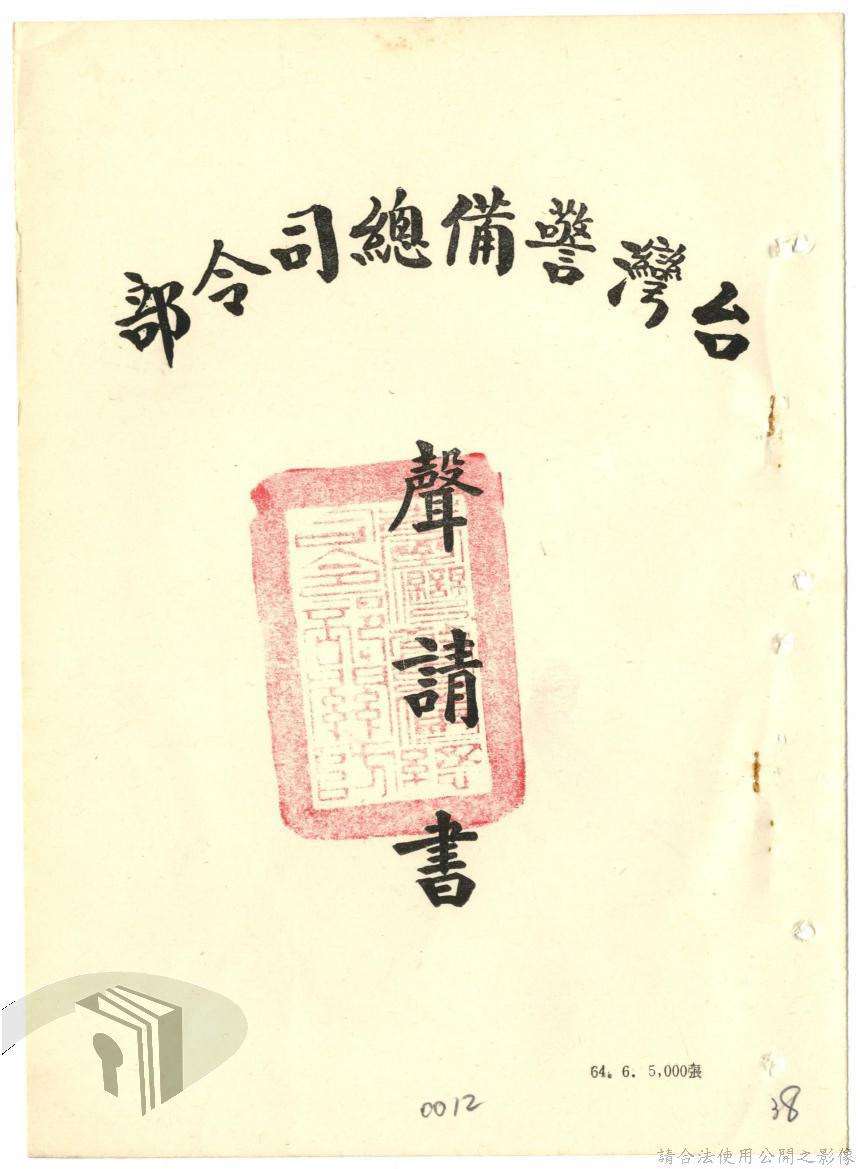 台灣警備總司令部
聲請書
64. 6. 5,000張
0012
38
請合法使用公開之影像